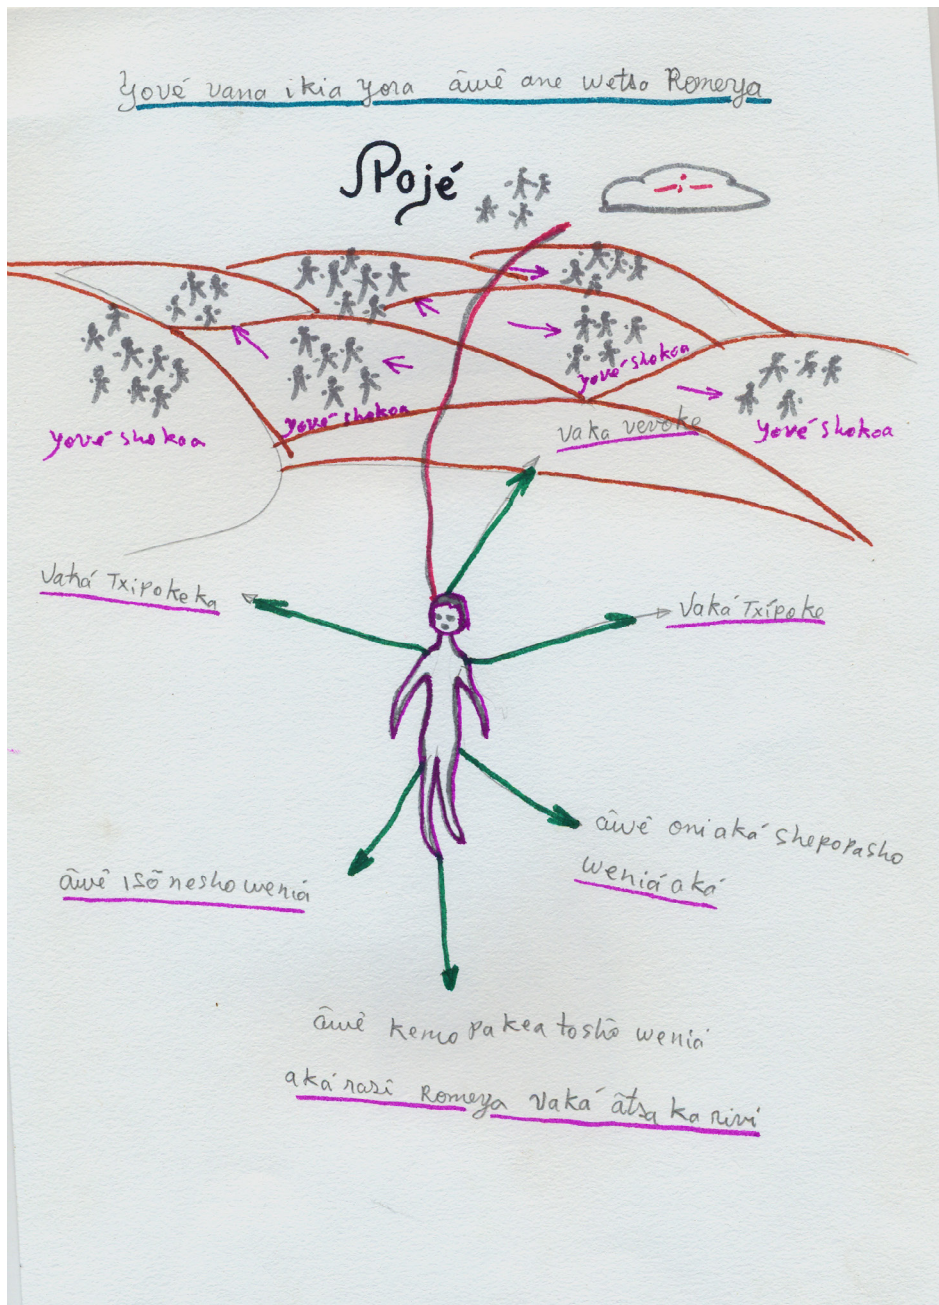 Yové vana ikia yora âwê ane wetsa Romeya
Pojé
yové shokoa
yové shokoa
yové shokoa
yové shokoa
vaka vevoke
vaká Txipokeka
vaká Txipoke
âwê oniaká shepopasho
weniá aká
âwê isõ nesho weniá
âwê kemo pakea toshõ weniá
aká rasî Romeya vaká âtsa ka riví